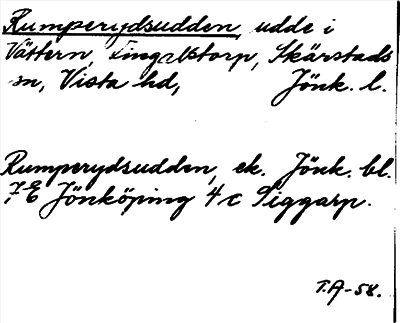 Rumperydsudden, udde i
Vättern, Lingustorp, Skärstads
sn, Vista hd, Jönk. l.
Rumperydsudden, ek. Jönk. bl.
7E Jönköping 4c Siggarp.
T.A-58.